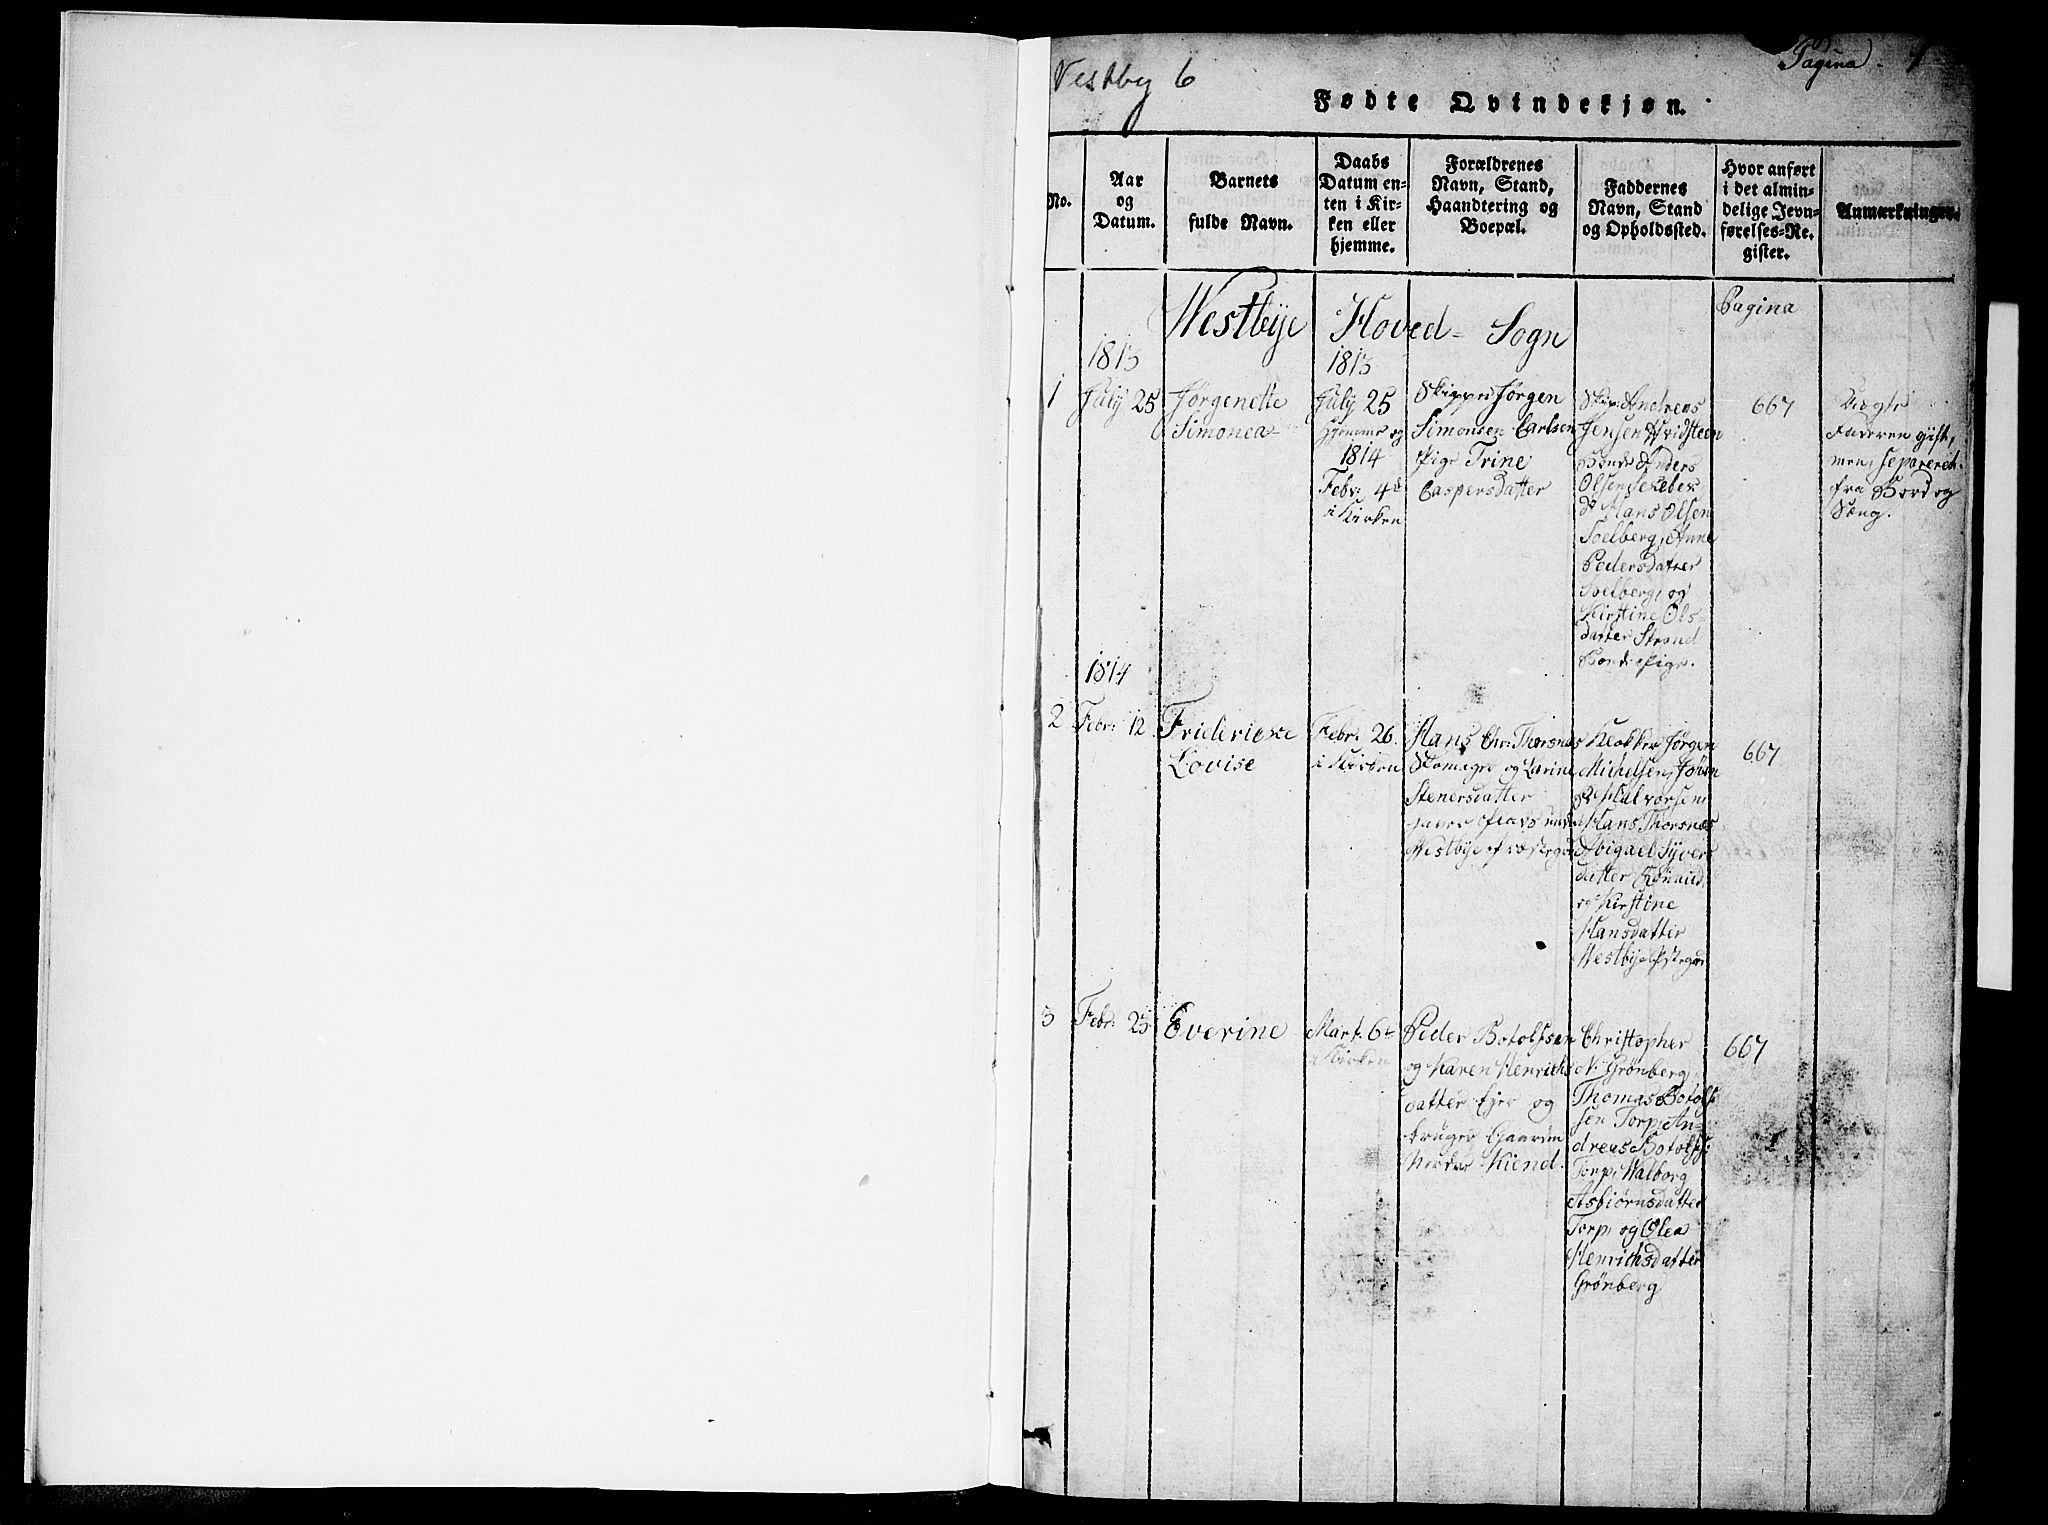 Vestby 6
Pagina 1
Fødte Qvindekjøn.
No.
Aar
og
Datum.
Barnets
fulde Navn.
Daabs
Datum en-
ten i Kir-
ken eller
hjemme.
Forældrenes
Navn, Stand,
Haandtering og
Boepæl.
Faddernes
Navn, Stand
og Opholdssted.
Hvor anført
i det almin-
delige Jevn-
førelses-Re-
gister.
Anmærkninger.
Westbije Hoved- Sogn
Pagina
1
1813
July 25
Jørgenette
Simonea
1813
July 25
hjemme og
1814
Febr: 4de
i Kirken
Skipper Jørgen
Simonsen Carlsen
Pige Trine
Caspersdatter
Skip: Andreas
Jensen Hvidsteen
Bonde Anders
Olsen
do Hans Olsen
Soelberg, Anne
Pedersdatter
Soelberg, og
Kirstine Ols-
datter Strand
Bonde Pige.
667
Faderen gift,
men separeret
fra Bord og
Seng.
1814
2
Febr: 12
Friderikke
Lovise
Febr: 26
i Kirken
Hans Chr: Thorsnæs
Skomager og Larine
Stenersdatter
Westbije Præstegd
Klokker Jørgen
Michelsen, Johan
Halvorsen
Hans Thorsnæs
Abigael Syvers
datter
og Kirstine
Hansdatter
Westbije Pstegrd
667
3
Febr: 25
Everine
Mart. 6te
i Kirken
Peder Botolfsen
og Karen Henrichs
datter Ejer og
bruger Gaarden
Nordre Kiend.
Christopher
N. Grønberg
Thomas Botolf
sen Torp, An-
dreas Botolfs:
Torp, Walborg
Asbiørnsdatter
Torp, og Olea
Henrichsdatter
Grønberg
667